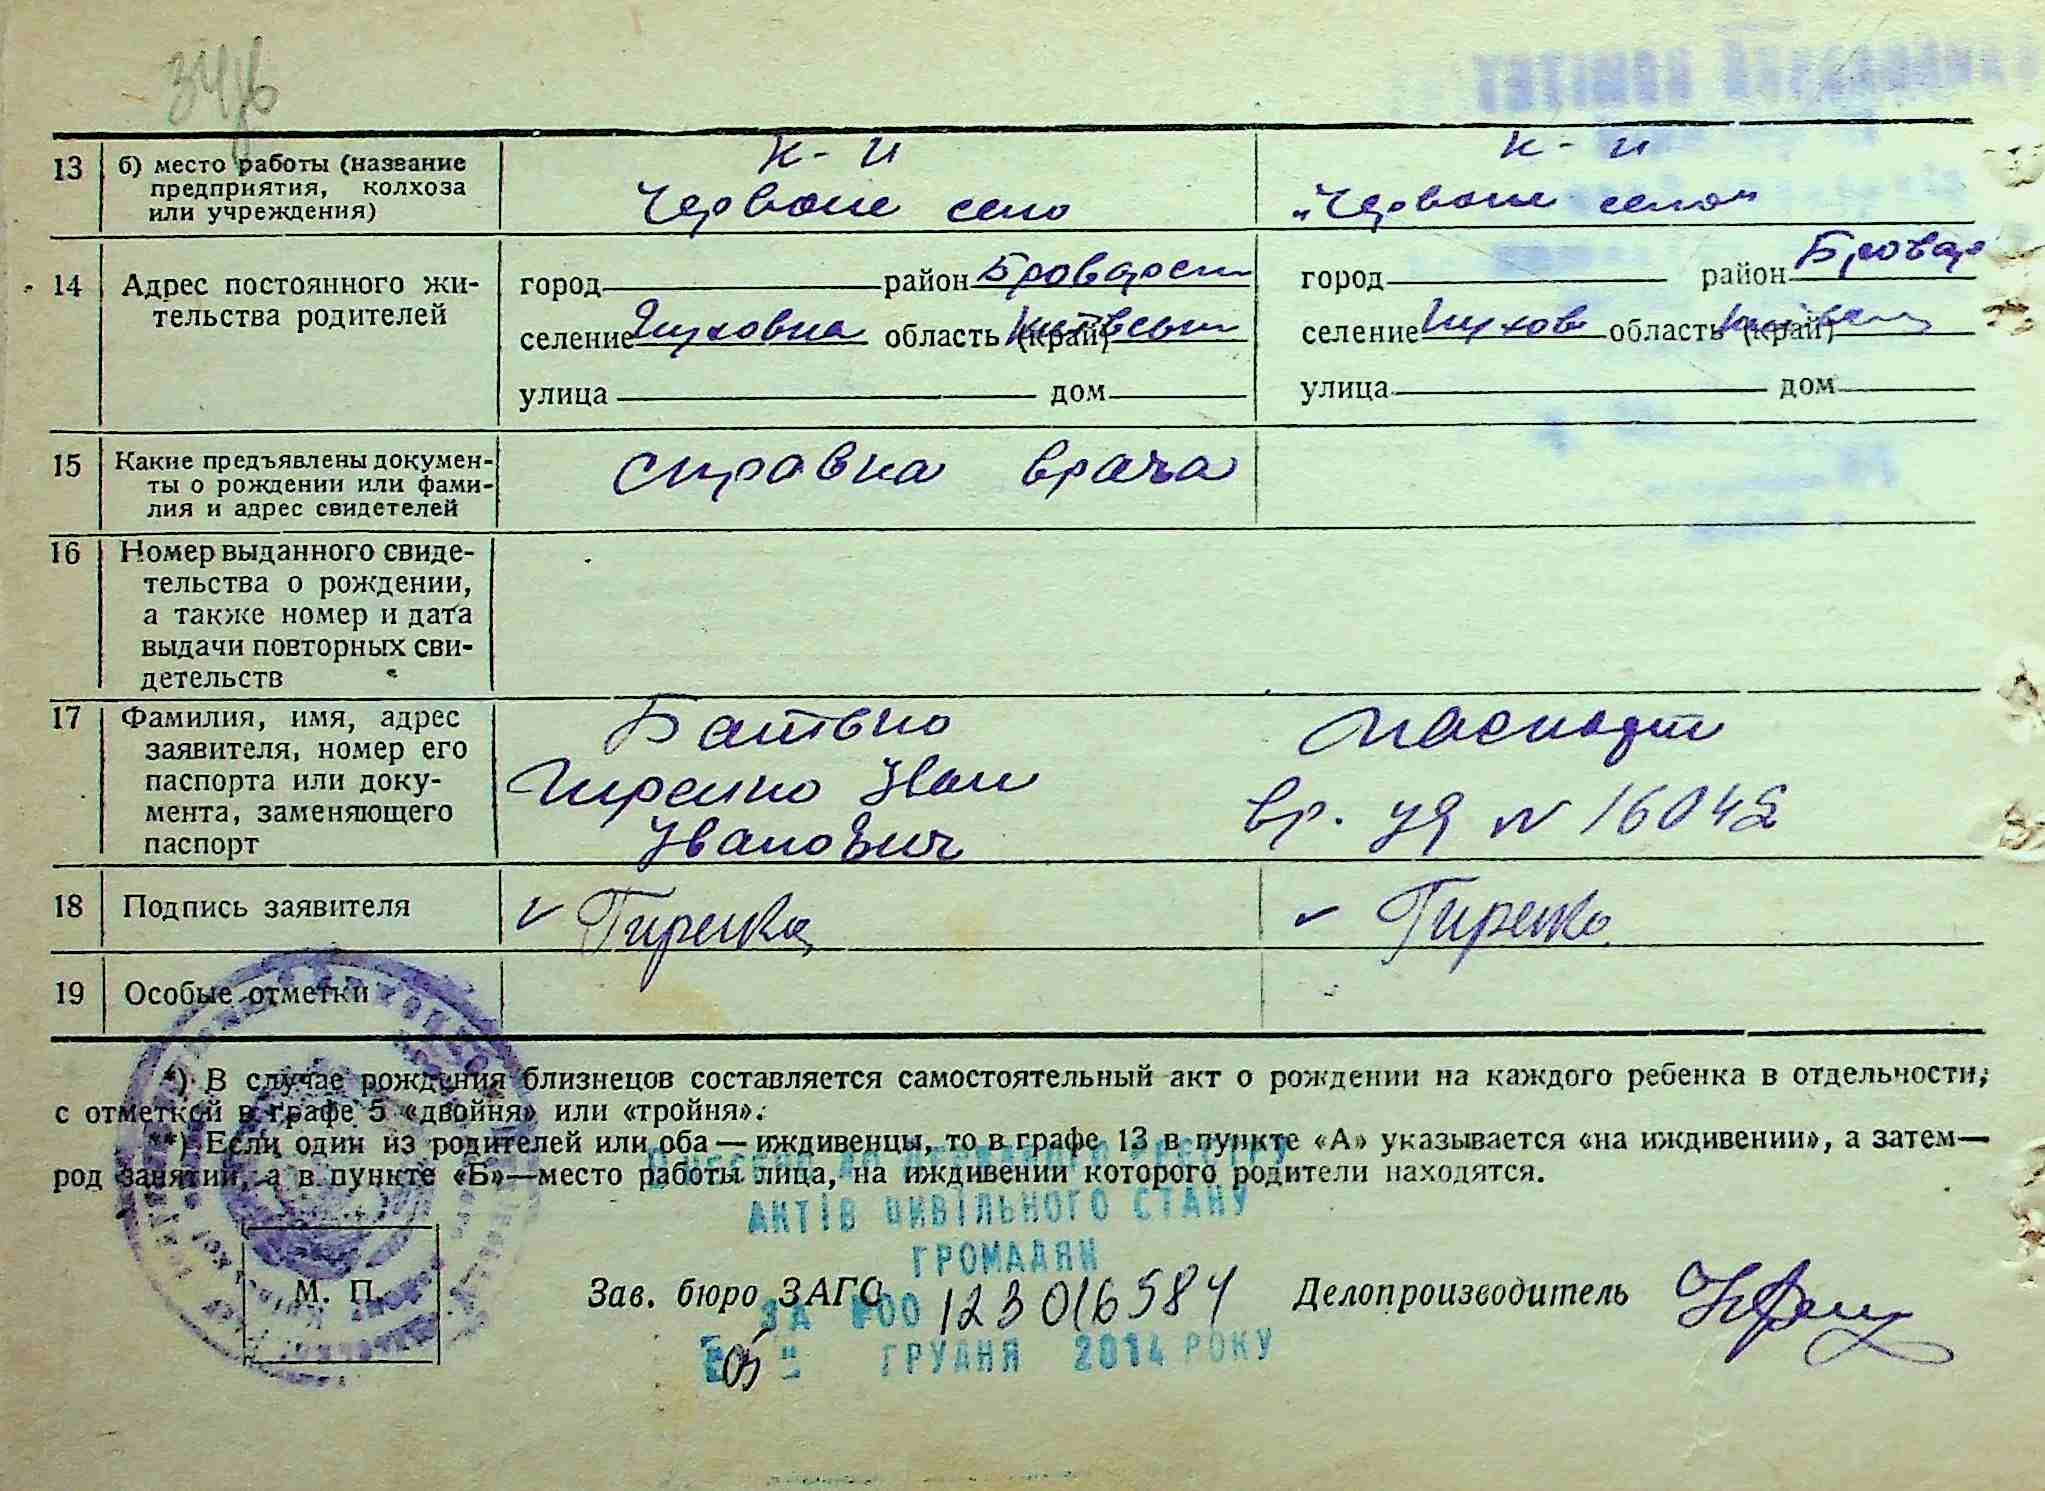 13 б) место работы (название
предприятия, колхоза
или учреждения)
К-п
Червоне село
К-п
"Червоне село"
14 Адрес постоянного жи-
тельства родителей
город район Броварськ
селение область (край) Київськ
улица дом
город район Бровар
селение область (край)
улица дом
15 Какие предъявлены докумен-
ты о рождении или фами-
лия и адрес свидетелей
справка врача
16 Номер выданного свиде-
тельства о рождении,
а также номер и дата
выдачи повторных сви-
детельств
17 Фамилия, имя, адрес
заявителя, номер его
паспорта или доку-
мента, заменяющего
паспорт
Батько
Гиренко Іван
Іванович
паспорт
вр. уд N 16042
18 Подпись заявителя
Гиренко
Гиренко
19 Особые отметки
*) В случае рождения близнецов составляется самостоятельный акт о рождении на каждого ребенка в отдельности,
с отметкой в графе 5 «двойня» или «тройня».
**) Если один из родителей или оба — иждивенцы, то в графе 13 в пункте «А» указывается «на иждивении», а затем—
род занятий, а в пункте «Б»—место работы лица, на иждивении которого родители находятся.
АКТІВ ЦИВІЛЬНОГО СТАНУ
ГРОМАДЯН
М. П.
Зав. бюро ЗАГС
Делопроизводитель
ЗА №00 123016584
05 ГРУДНЯ 2014 РОКУ